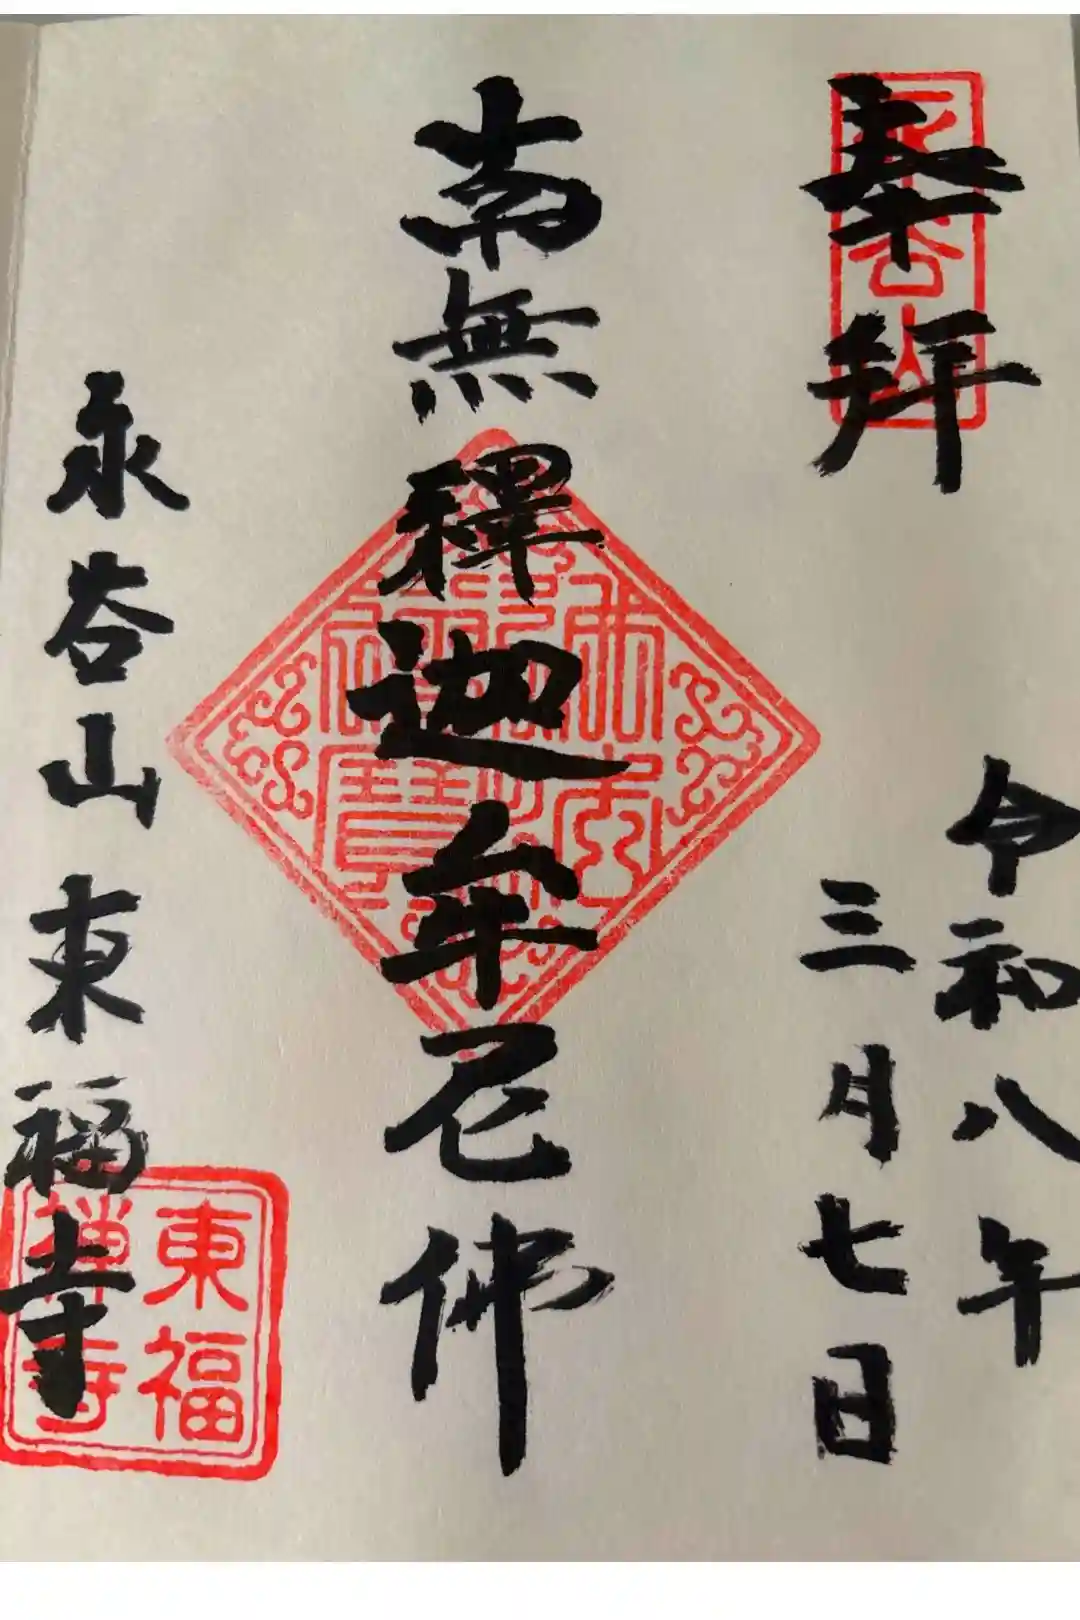 奉拝
永谷山
令和八年
三月七日
南無釋迦牟尼佛
永谷山東福寺
東福禅寺